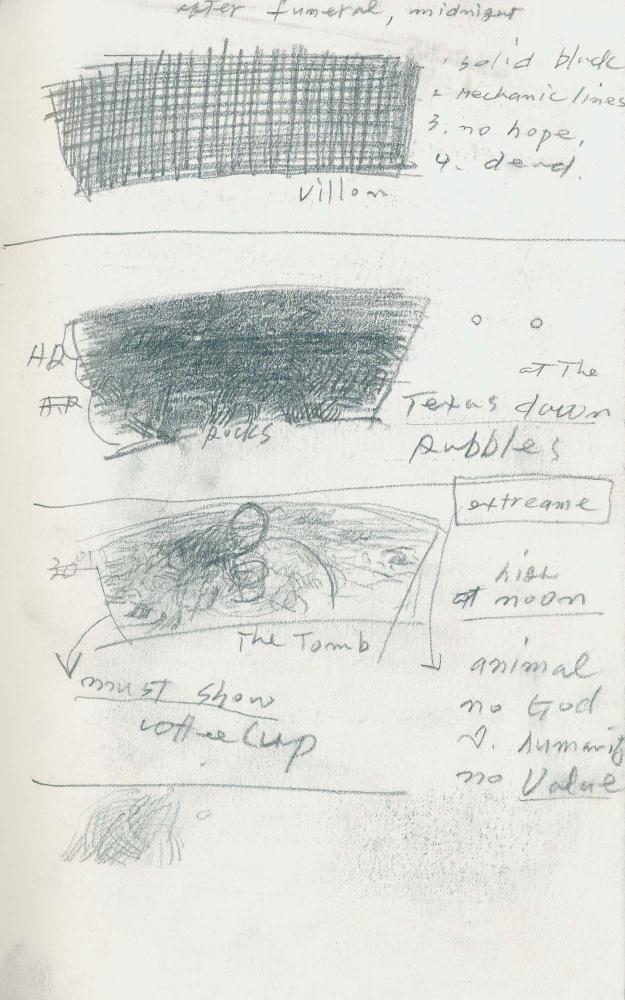 after funeral, midnight
1. solid black
2. mechanic lines
3. no hope,
4. dead.
Villon
HB
at The
Texas dawn
Rocks
pubbles
extreame
30"
high
at noon
The Tomb
animal
must show
no God
coffee Cup
no Value